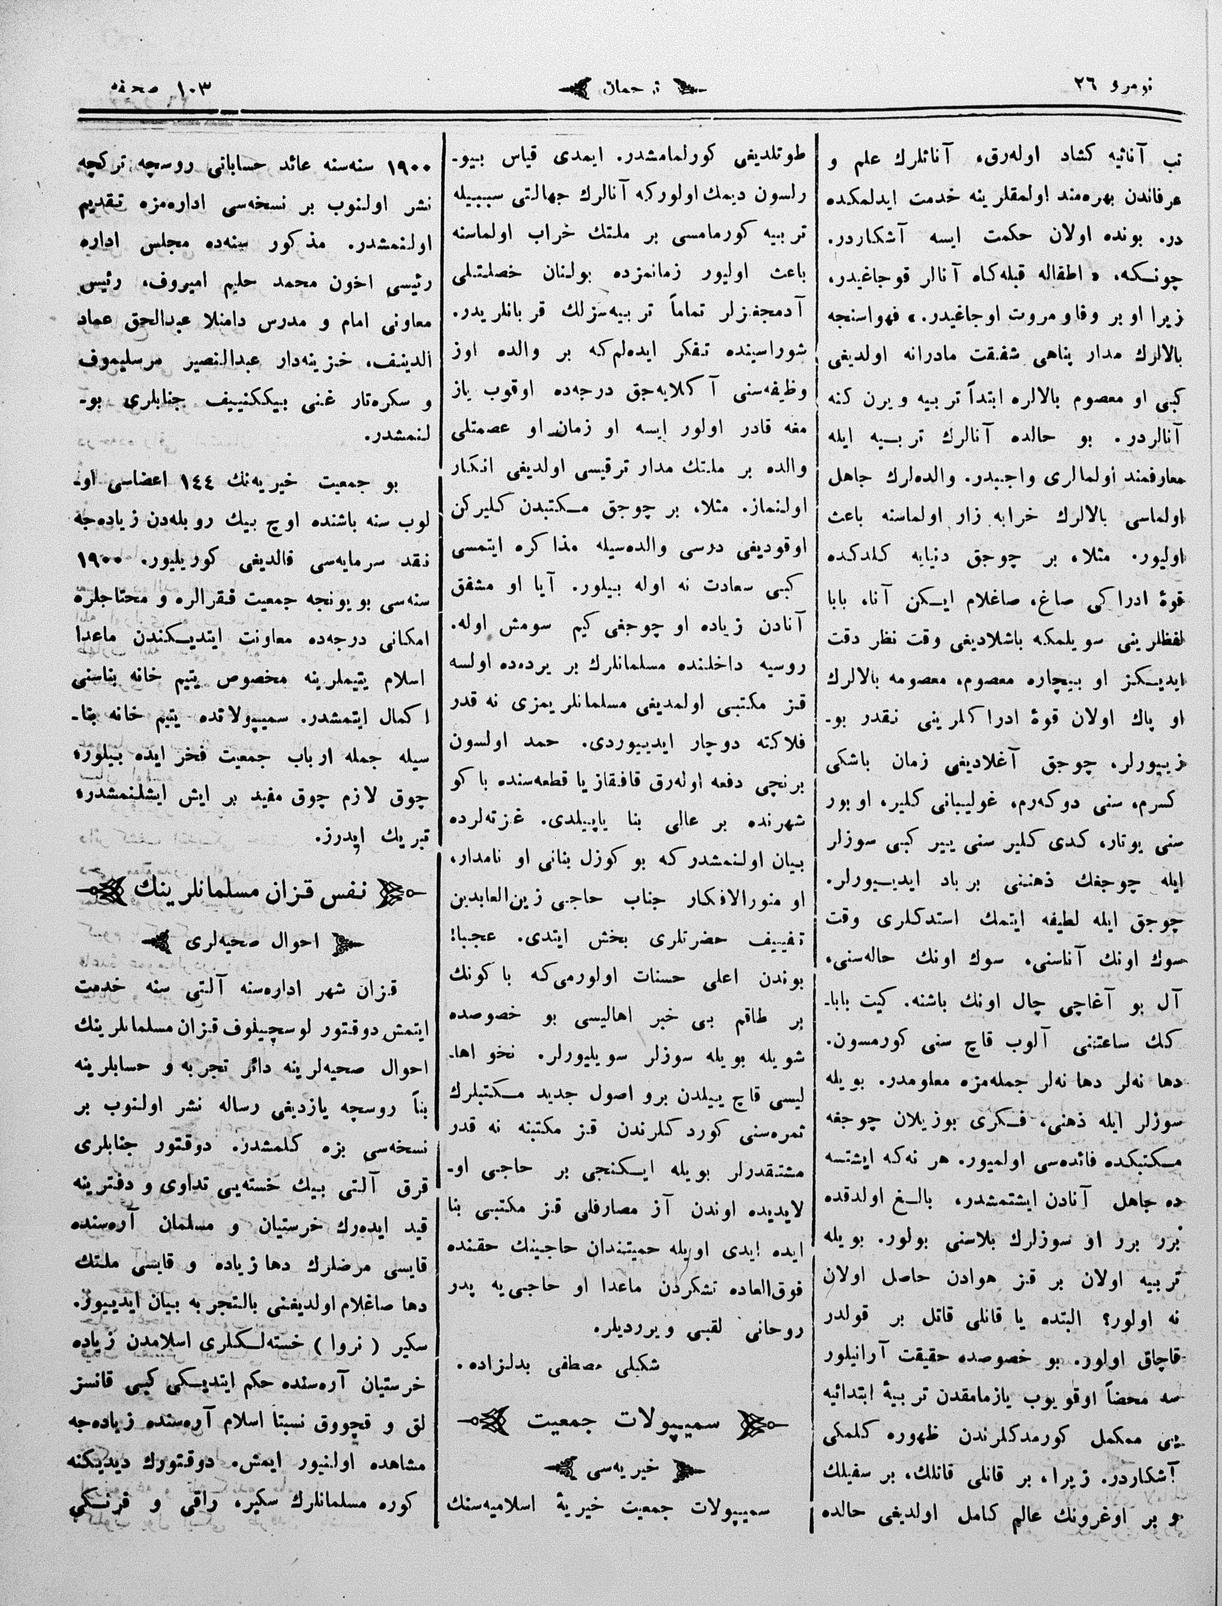 نومرو ٢٦
ترجمان
١٠٣ صحیفه
تب آنائیه کشاد اولەرق، آنائلرك علم و
عرفاندن بهره‌مند اولمقلرینه خدمت ایدلمکده
در. بونده اولان حکمت ایسه آشکاردر.
چونکه، «اطفاله قبله‌کاه آنالر قوجاغیدر،
زیرا او بر وفا و مروت اوجاغیدر.» فهواسنجه
بالالرك مدار پناهی شفقت مادرانه اولدیغی
کبی او معصوم بالالره ابتداً تربیه ویرن کنه
آنالردر. بو حالده آنالرك تربیه ایله
معارفمند اولمالری واجبدر. والده‌لرك جاهل
اولماسی بالالرك خرابه زار اولماسنه باعث
اولیور. مثلا، بر چوجق دنیایه کلدکده
قوۀ ادراکی صاغ، صاغلام ایکن آنا، بابا
لفظلرینی سویلمکه باشلادیغی وقت نظر دقت
ایدیکز او بیچاره معصوم، معصومه بالالرك
او پاك اولان قوۀ ادراکلرینی نقدر بو۔
زییورلر. چوجق آغلادیغی زمان باشکی
کسرم، سنی دوکه‌رم، غولیبانی کلیر، او بور
سنی یوتار، کدی کلیر سنی ییر کبی سوزلر
ایله چوجغك ذهننی برباد ایدییورلر.
چوجق ایله لطیفه ایتمك استدکلری وقت
سوك اونك آناسنی، سوك اونك حاله‌سنی،
آل بو آغاچی چال اونك باشنه. کیت بابا۔
كك ساعتنی آلوب قاچ سنی کورمسون.
دها نه‌لر دها نه‌لر جمله‌مزه معلومدر. بویله
سوزلر ایله ذهنی، فکری بوزیلان چوجغه
مکتبکده فائده‌سی اولمیور. هر نه‌که ایشتسه
ده جاهل آنادن ایشتمشدر، بالغ اولدقده
برر برر او سوزلرك بلاسنی بولور. بویله
تربیه اولان بر قز هوادن حاصل اولان
نه اولور؟ البتده یا قانلی قاتل بر قولدر
قاچاق اولور. بو خصوصده حقیقت آرانیلور
سه محضاً اوقویوب یازمامقدن تربیۀ ابتدائیه
یی ممکمل کورمدکلرندن ظهوره کلمکی
آشکاردر. زیرا، بر قانلی قاتلك، بر سفیلك
و بر اوغرونك عالم کامل اولدیغی حالده
طوتلدیغی کورلمامشدر. ایمدی قیاس بیو۔
رلسون دیمك اولورکه آنالرك جهالتی سببیله
تربیه کورمامسی بر ملتك خراب اولماسنه
باعث اولیور زمانمزده بولنان خصلتلی
آدمجغزلر تماماً تربیه‌سزلك قربانلریدر.
شوراسینده تفکر ایده‌لم‌که بر والده اوز
وظیفه‌سنی آکلایه‌جق درجه‌ده اوقوب یاز
مغه قادر اولور ایسه او زمان او عصمتلی
والده بر ملتك مدار ترقیسی اولدیغی انکار
اولنماز. مثلا، بر چوجق مکتبدن کلیرکن
اوقودیغی درسی والده‌سیله مذاکره ایتمسی
کبی سعادت نه اوله بیلور. آیا او مشفق
آنادن زیاده او چوجغی کیم سومش اوله.
روسیه داخلنده مسلمانلرك بر یرده‌ده اولسه
قز مکتبی اولمدیغی مسلمانلریمزی نه قدر
فلاکته دوچار ایدییوردی. حمد اولسون
برنچی دفعه اوله‌رق قافقاز یا قطعه‌سنده باکو
شهرنده بر عالی بنا یاپیلدی. غزته‌لرده
بیان اولنمشدرکه بو کوزل بنانی او نامدار،
او منورالافکار جناب حاجی زین‌العابدین
تقییف حضرتلری بخش ایتدی. عجبا!
بوندن اعلی حسنات اولورمی‌که باکونك
بر طاقم بی خبر اهالیسی بو خصوصده
شویله بویله سوزلر سویلیورلر. نخو اها۔
لیسی قاچ ییلدن برو اصول جدید مکتبلرك
ثمره‌سنی کوردکلرندن قز مکتبنه نه قدر
مشتقدرلر بویله ایکنجی بر حاجی او۔
لایدیده اوندن آز مصارفلی قز مکتبی بنا
ایده ایدی اویله حمیتندان حاجینك حقنده
فوق‌العاده تشکردن ماعدا او حاجی‌یه پدر
روحانی لقبی ویرردیلر.
شکیلی مصطفی بدلزاده.
سمیپولات جمعیت
خیریه‌سی
سمیپولات جمعیت خیریۀ اسلامیه‌سنك
١٩٠٠ سنه‌سنه عائد حسابانی روسچه ترکچه
نشر اولنوب بر نسخه‌سی اداره‌مزه تقدیم
اولنمشدر. مذکور سنه‌ده مجلس اداره
رئیسی اخون محمد حلیم امیروف، رئیس
معاونی امام و مدرس دامنلا عبدالحق عماد
الدینف، خزینه‌دار عبدالنصیر مرسلیموف
و سکره‌تار غنی بیککنییف جنابلری بو۔
لنمشدر.
بو جمعیت خیریه‌نك ١٤٤ اعضاسی او۔
لوب سنه باشنده اوچ بیك روبله‌دن زیاده‌جه
نقد سرمایه‌سی قالدیغی کوریلیور. ١٩٠٠
سنه‌سی بویونجه جمعیت فقرالره و محتاجلره
امکانی درجه‌ده معاونت ایتدیکندن ماعدا
اسلام یتیملرینه مخصوص یتیم خانه بناسنی
اکمال ایتمشدر. سمیپولاتده یتیم خانه بنا۔
سیله جمله ارباب جمعیت فخر ایده بیلور،
چوق لازم چوق مفید بر ایش ایشلنمشدر،
تبریك ایدرز.
نفس قزان مسلمانلرینك
احوال صحیه‌لری
قزان شهر اداره‌سنه آلتی سنه خدمت
ایتمش دوقتور لوسچیلوف قزان مسلمانلرینك
احوال صحیه‌لرینه دائر تجربه و حسابلرینه
بناً روسچه یازدیغی رساله نشر اولنوب بر
نسخه‌سی بزه کلمشدر. دوقتور جنابلری
قرق آلتی بیك خسته‌یی تداوی و دفترینه
قید ایده‌رك خرستیان و مسلمان آره‌سنده
قایسی مرضلرك دها زیاده و قایسی ملتك
دها صاغلام اولدیغنی بالتجربه بیان ایدییور.
سکیر (نروا) خسته‌لکلری اسلامدن زیاده
خرستیان آره‌سنده حکم ایتدیکی کبی قانسز
لق و قچووق نسبتا اسلام آره‌سنده زیاده‌جه
مشاهده اولنیور ایمش. دوقتورك دیدیکنه
کوره مسلمانلرك سکیر، راقی و فرنکی